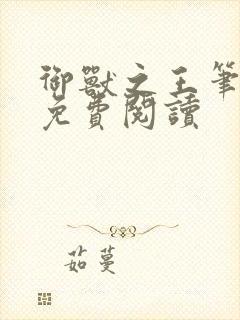 御獸之王筆
免費閱讀
茹蔓